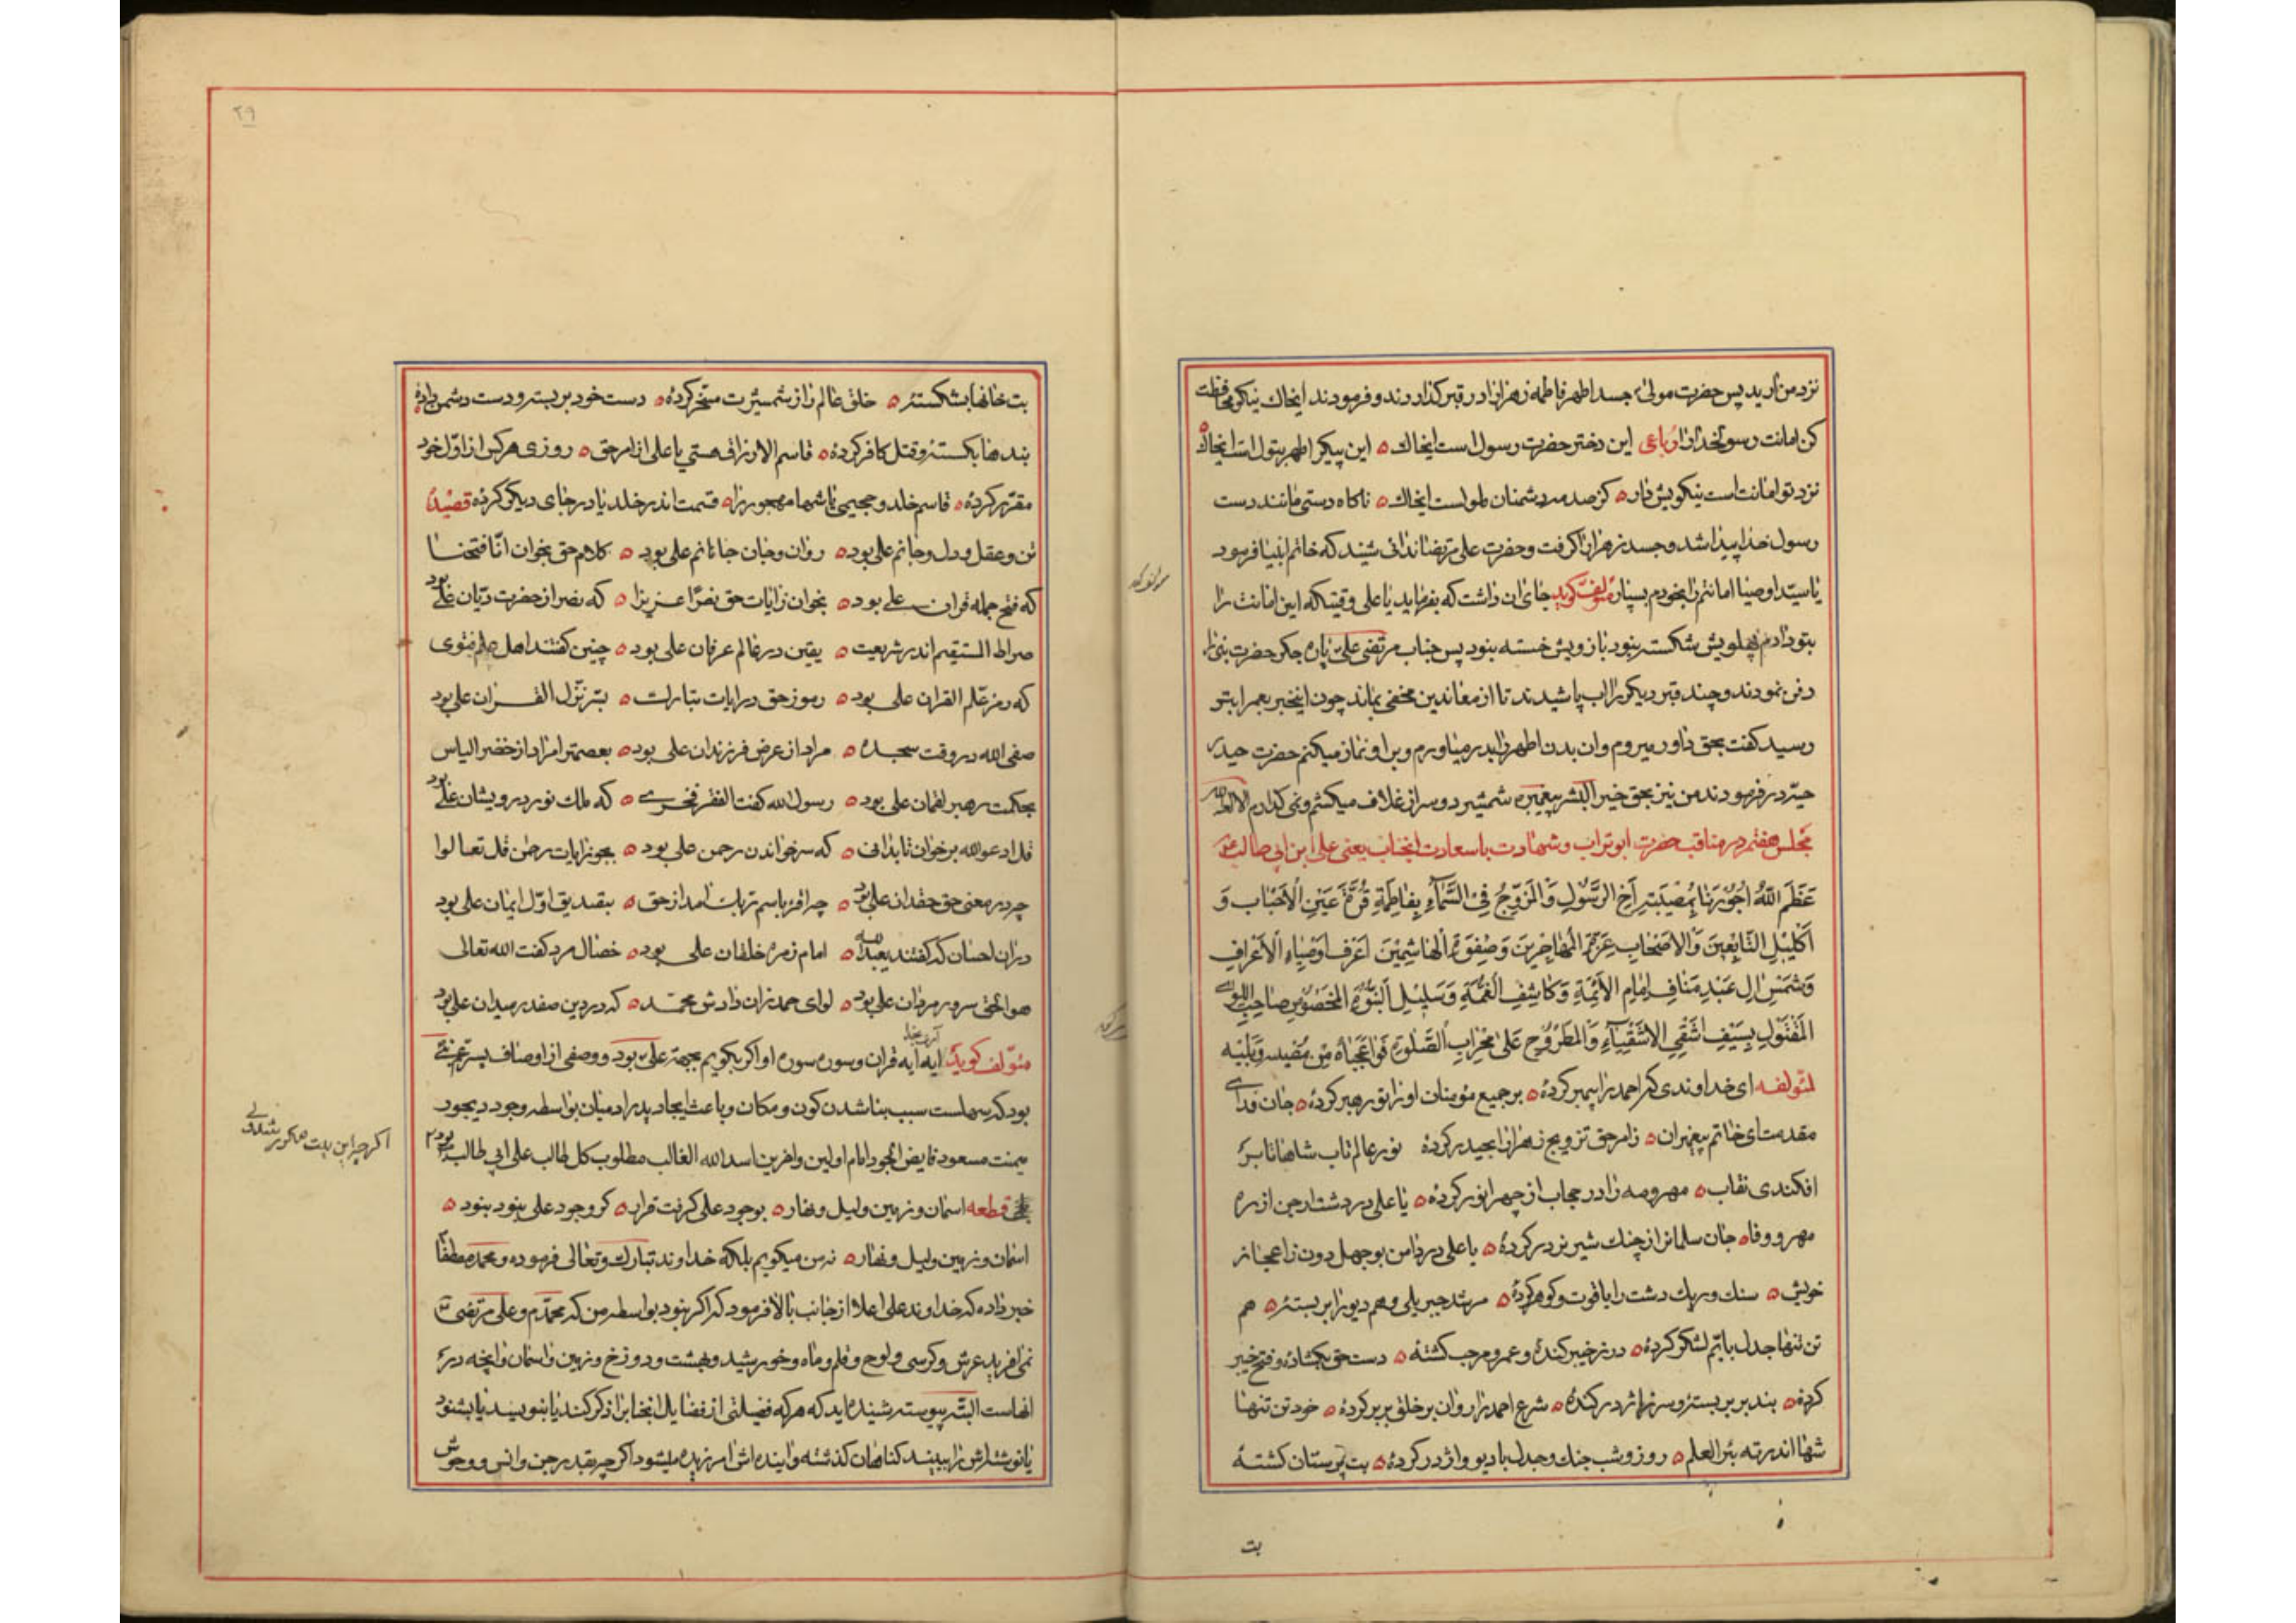 نزد من آرید پس حضرت مولی جسد اطهر فاطمه زهرا را در قبر گذاردند و فرمودند ایخاک نیکو محافظت
کن امانت رسولخدا را رباعی این دختر حضرت رسول است ایخاک این پیکر اطهر بتول است ایخاک
نزد تو امانت است نیکویش دار کز صدمه دشمنان ملولست ایخاک ناکاه دستی مانند دست
رسول خدا پیدا شد و جسد زهرا را گرفت و حضرت علی مرتضا ندائی شنید که خاتم انبیا فرمود
یا سید اوصیا امانتم را بخودم بسپار مؤلف کوید جای ان داشت که بفرماید یا علی وقتیکه این امانت را
بتو دادم پهلویش شکسته نبود بازویش خسته نبود پس جناب مرتضی علی پاره جکر حضرت بنی را
دفن نمودند و چند قبر دیکر را اب پاشیدند تا از معاندین مخفی بماند چون اینخبر بعمر ابتر
رسید کفت بحق داور میروم و ان بدن اطهر را بدر میاورم و بر او نماز میکنم حضرت حیدر
حیه در فرمودند من نیز بحق خیر البشر پیغمبر شمشیر دو سر از غلاف میکشم و نمی گذارم
مجلس هفتم در مناقب حضرت ابوتراب و شهادت با سعادت انجناب یعنی علی ابن ابی طالب
عَظَّمَ اللّهُ اُجُورَنا بِمُصیبَتِ اَخِ الرَّسُولِ وَالْمُزَوَّجِ فِی السَّمآءِ بِفاطِمَةِ قُرَّةِ عَیْنِ الاَحْبابِ وَ
اَکْلیلِ التّابِعینَ وَالاَصْحابِ عِزَّةِ المُهاجِرینَ وَصَفْوَةِ الْهاشِمِیّینَ اَعْرَفِ اَوْصِیاءِ الاَعْرافِ
وَشَمْسِ الِ عَبْدِ مَنافٍ اِمامِ الاَئِمَّةِ وَکاشِفِ الغُمَّةِ وَسَلیلِ النُّبُوَّةِ المَخْصُوصِ صاحِبِ اللِّوآءِ
المَقْتُولِ بِسَیْفِ اَشْقَی الاَشْقِیاءِ وَالمَطْرُوحِ عَلی مِحْرابِ الصَّلوةِ فَواعَجَباهُ مِنْ مُصیبَةٍ وَبَلِیَّة
لمؤلفه ای خداوندی که احمد را پیمبر کردهٔ بر جمیع مؤمنان او را تو رهبر کردهٔ جان فدای
مقدمت ای خاتم پیغمبران ز امر حق تزویج زهرا را بحیدر کردهٔ نور عالم تاب شاها تا بر
افکندی نقاب مهر و مه را در حجاب از چهر انور کردهٔ یا علی در دشت ارجن از ره
مهر و وفا جان سلمان را از چنک شیر نر در کردهٔ یا علی در دامن بوجهل دون ز اعجاز
خویش سنک و ریک دشت را یاقوت و گوهر کردهٔ مرشد جبریلی و هم دیو را بر بستهٔ هم
تن تنها جدل با یم لشکر کردهٔ در ز خیبر کندهٔ و عمرو و مرحب کشتهٔ دست حق بکشادهٔ و فتح خیبر
کردهٔ بند بربر بستهٔ و سر ز اژدر کندهٔ شرع احمد را روان بر خلق بربر کردهٔ خود تن تنها
شها اندر ته بئر العلم روز و شب جنک و جدل با دیو و اژدر کردهٔ بت پرستان کشتهٔ
بت
مؤلف کوید
۲۹
بت خانها بشکستهٔ خلق عالم را ز شمشیرت مسخر کردهٔ دست خود بر بستهٔ و دست دشمن دادهٔ
بندها بکستهٔ و قتل کافر کردهٔ قاسم الارزاق هستی یا علی از امر حق روزی هر کس از اول خود
مقرر کردهٔ قاسم خلد و جحیمی تا شها مهجور را قسمت اندر خلد یا در جای دیکر کردهٔ قصیدهٔ
تن و عقل و دل و جانم علی بود روان و جان جانانم علی بود کلام حق بخوان انا فتحنا
که فتح جمله قران علی بود بخوان ز ایات حق نصرا عزیزا که نصر از حضرت دیان علی بود
صراط المستقیم اندر شریعت یقین در عالم عرفان علی بود چنین کفتند اهل علم فتوی
که رمز علم القران علی بود رموز حق در ایات تبارک بسر نزل الفرقان علی بود
صفی الله در وقت سجده مراد از عرض فرزندان علی بود بعصمت مراد از خضر الیاس
بحکمت رهبر لقمان علی بود رسول الله کفت الفقر فخری که ملک نور درویشان علی بود
قل ادعو الله برخوان تا بدانی که سر خواندن رحمن علی بود بجو ز ایات رحمن قل تعالوا
چه در معنی حق حقدان علی بود چه اقرا باسم ربک امد از حق بتصدیق اول ایمان علی بود
در ان احسان که کفتند یعبد الله امام زمره خلقان علی بود خصال مرد کفت الله تعالی
هو الحق سرور مردان علی بود لوای حمد زان دادش محمد که در دین صفدر میدان علی بود
مؤلف کوید ایه ایه قران و سوره سوره او اکر بکویم بجهة علی بود و وصفی از اوصاف بسر عم نبی
بود که سهلست سبب بنا شدن کون و مکان و باعث ایجاد پدر ادمیان بواسطه وجود ذیجود
میمنت مسعود فایض الجود امام اولین و اخرین اسد الله الغالب مطلوب کل طالب علی ابی طالب بود
قطعه اسمان و زمین و لیل و نهار بوجود علی کرفت قرار کر وجود علی نبود نبود
اسمان و زمین و لیل و نهار نه من میکویم بلکه خداوند تبارک و تعالی فرموده و محمد مصطفا
خبر داده که خداوند علی اعلا از جانب بالا فرمود که اکر نبود بواسطه من که محمدم و علی مرتضی
نمی افرید عرش و کرسی و لوح و قلم و ماه و خورشید و بهشت و دوزخ و زمین و اسمان و انچه در
انهاست البته پیوسته شنیده اید که هر که فضیلتی از فضایل انجناب را ذکر کند یا بنویسد یا بشنود
یا نوشته اش را ببیند کناهان کذشته و اینده اش امرزیده میشود اکر چه بقدر جن و انس و وحوش
اکر چه این بیت مکرر شد ولی